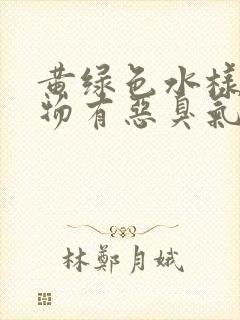 黄绿色水樣
物有惡臭氣
林鄭月娥